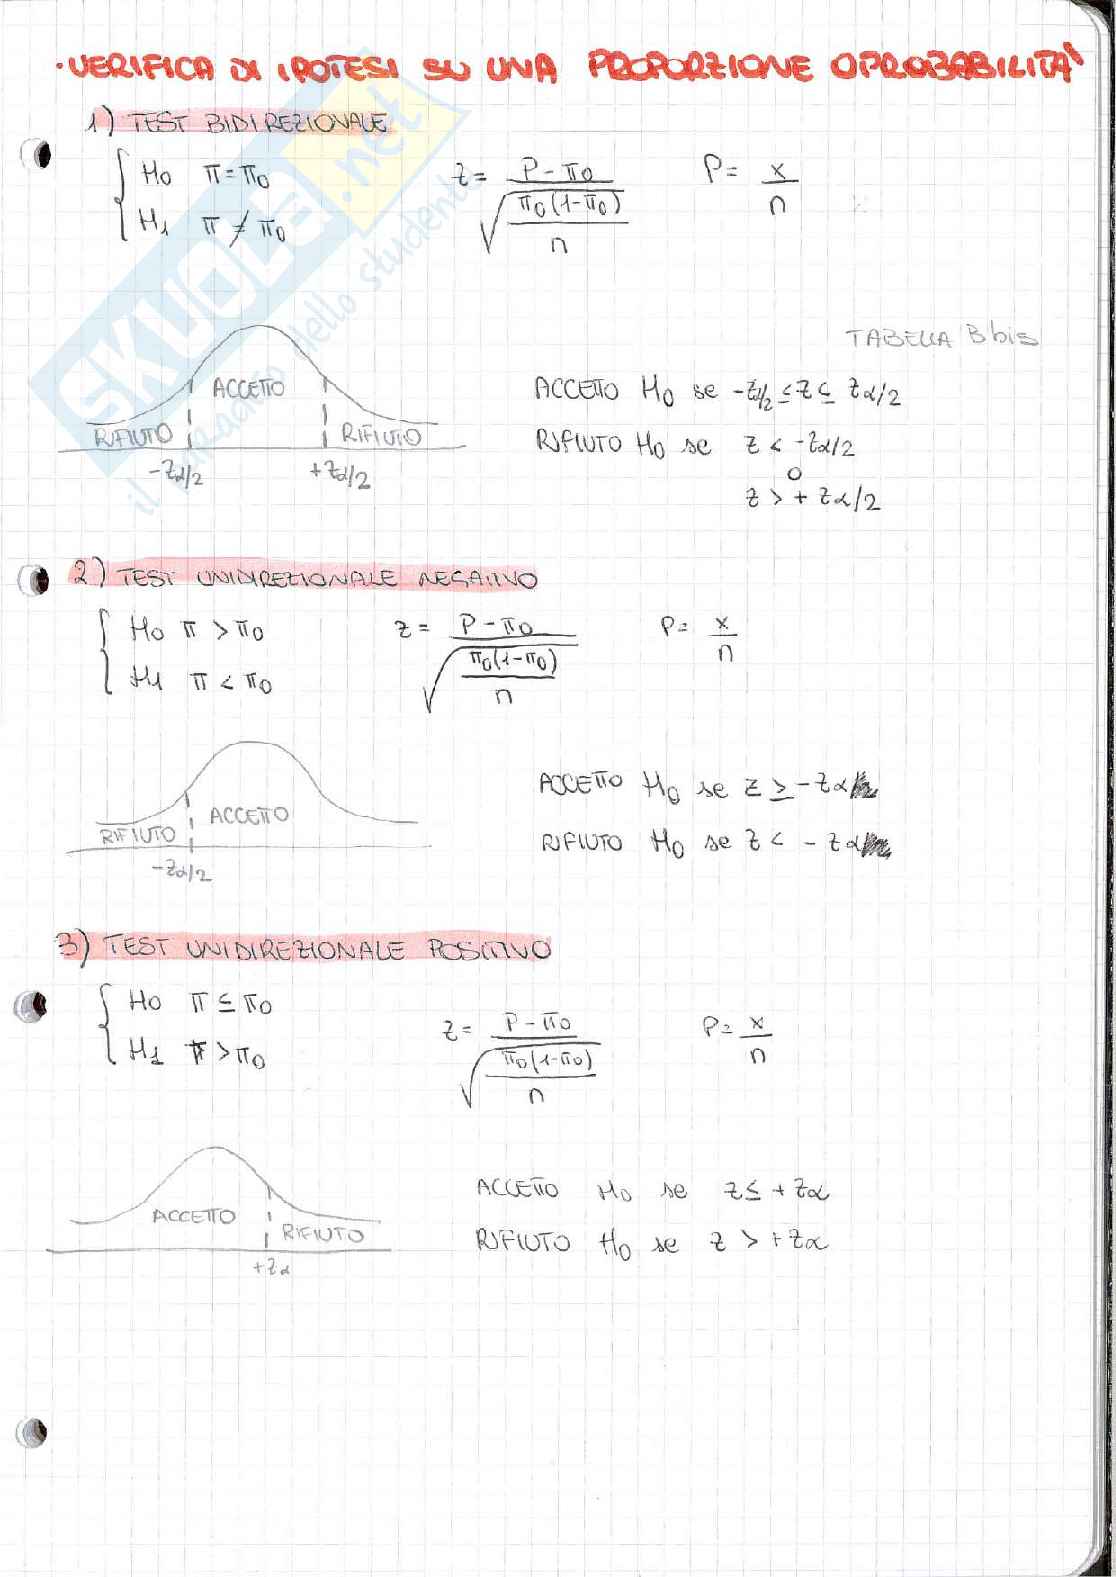 · VERIFICA DI IPOTESI SU UNA PROPORZIONE O PROBABILITÀ
1) TEST BIDIREZIONALE
H0 π = π0
H1 π ≠ π0
z = P - π0 / √(π0(1-π0) / n)
P = x / n
TABELLA B bis
ACCETTO
RIFIUTO
RIFIUTO
-zα/2
+zα/2
ACCETTO H0 se -zα/2 ≤ z ≤ zα/2
RIFIUTO H0 se z < -zα/2
o
z > + zα/2
2) TEST UNIDIREZIONALE NEGATIVO
H0 π > π0
H1 π < π0
z = P - π0 / √(π0(1-π0) / n)
P = x / n
ACCETTO
RIFIUTO
-zα/2
ACCETTO H0 se z ≥ -zα
RIFIUTO H0 se z < - zα
3) TEST UNIDIREZIONALE POSITIVO
H0 π ≤ π0
H1 π > π0
z = P - π0 / √(π0(1-π0) / n)
P = x / n
ACCETTO
RIFIUTO
+zα
ACCETTO H0 se z ≤ + zα
RIFIUTO H0 se z > + zα
SKUOLA.net
il paradiso dello studente